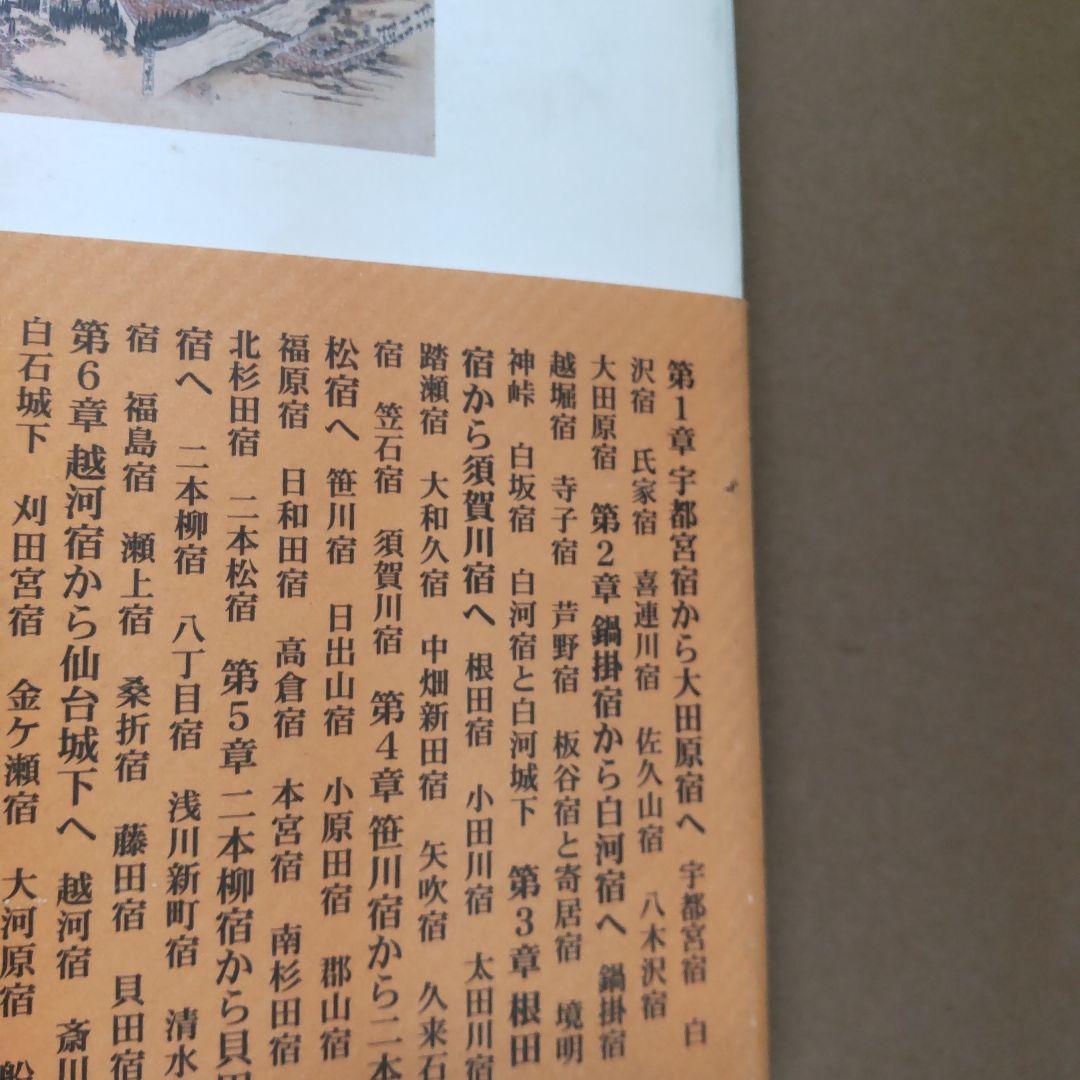 第1章 宇都宮宿から大田原宿へ 宇都宮宿 白
沢宿 氏家宿 喜連川宿 佐久山宿 八木沢宿
大田原宿 第2章 鍋掛宿から白河宿へ 鍋掛宿
越堀宿 寺子宿 芦野宿 板谷宿と寄居宿 境明
神峠 白坂宿 白河宿と白河城下 第3章 根田
宿から須賀川宿へ 根田宿 小田川宿 太田川宿
踏瀬宿 大和久宿 中畑新田宿 矢吹宿 久来石
宿 笠石宿 須賀川宿 第4章 笹川宿から二本
松宿へ 笹川宿 日出山宿 小原田宿 郡山宿
福原宿 日和田宿 高倉宿 本宮宿 南杉田宿
北杉田宿 二本松宿 第5章 二本柳宿から貝田
宿へ 二本柳宿 八丁目宿 浅川新町宿 清水
宿 福島宿 瀬上宿 桑折宿 藤田宿 貝田宿
第6章 越河宿から仙台城下へ 越河宿 斎川
白石城下 刈田宮宿 金ケ瀬宿 大河原宿 船